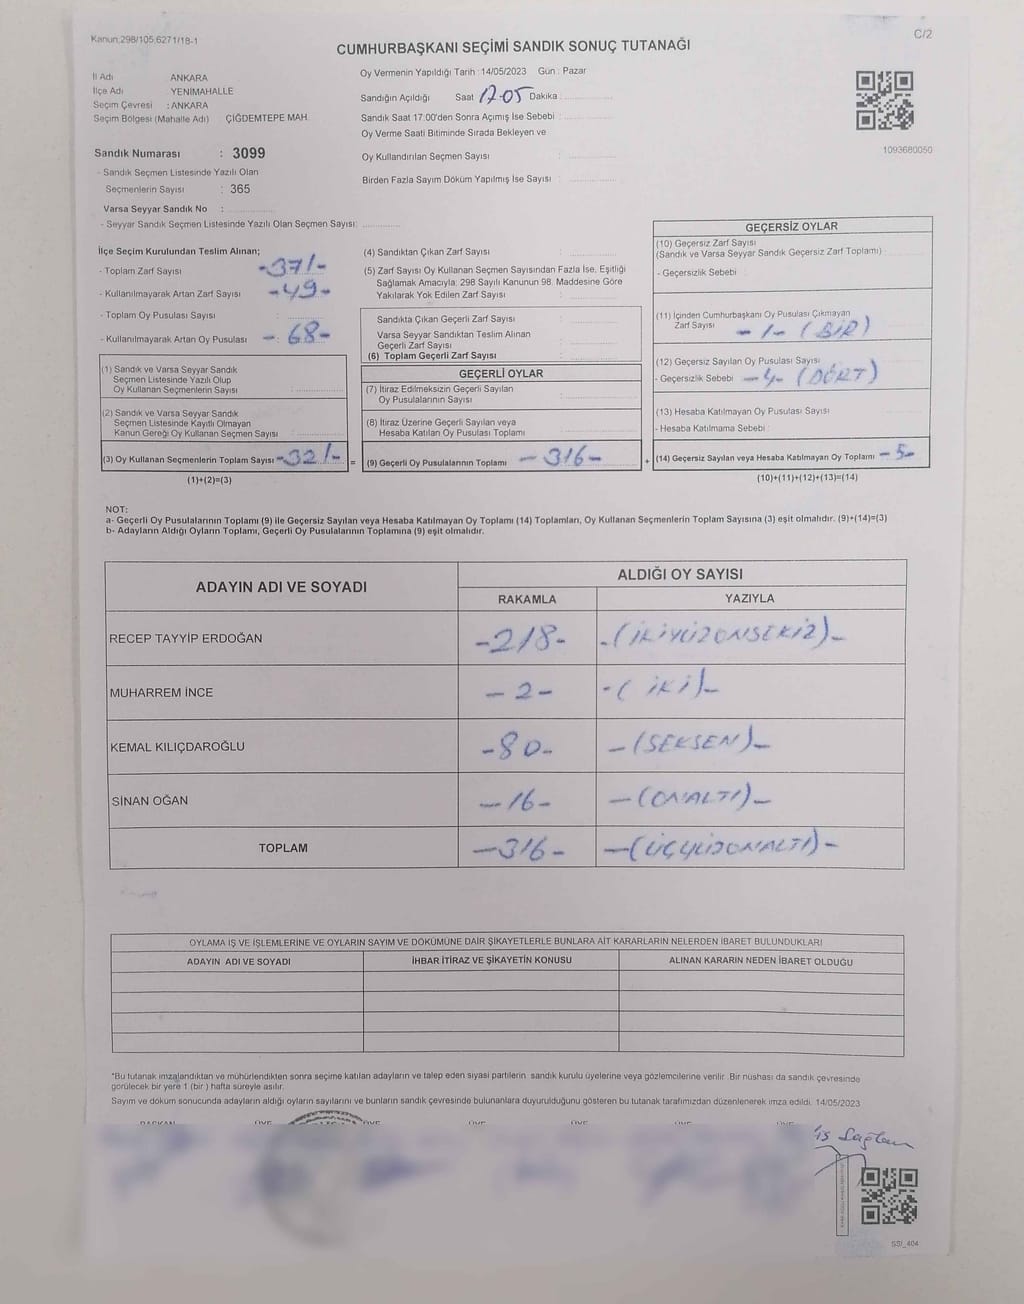 Kanun:298/105,6271/18-1
C/2
CUMHURBAŞKANI SEÇİMİ SANDIK SONUÇ TUTANAĞI
İl Adı ANKARA
İlçe Adı YENİMAHALLE
Seçim Çevresi : ANKARA
Seçim Bölgesi (Mahalle Adı) ÇİĞDEMTEPE MAH.
Sandık Numarası : 3099
- Sandık Seçmen Listesinde Yazılı Olan
Seçmenlerin Sayısı : 365
Varsa Seyyar Sandık No :
- Seyyar Sandık Seçmen Listesinde Yazılı Olan Seçmen Sayısı:
Oy Vermenin Yapıldığı Tarih : 14/05/2023 Gün : Pazar
Sandığın Açıldığı Saat 17.05 Dakika :
Sandık Saat 17:00'den Sonra Açımış İse Sebebi :
Oy Verme Saati Bitiminde Sırada Bekleyen ve
Oy Kullandırılan Seçmen Sayısı :
Birden Fazla Sayım Döküm Yapılmış İse Sayısı :
1093680050
İlçe Seçim Kurulundan Teslim Alınan;
- Toplam Zarf Sayısı -371-
- Kullanılmayarak Artan Zarf Sayısı -49-
- Toplam Oy Pusulası Sayısı :
- Kullanılmayarak Artan Oy Pusulası -68-
(1) Sandık ve Varsa Seyyar Sandık
Seçmen Listesinde Yazılı Olup
Oy Kullanan Seçmenlerin Sayısı :
(2) Sandık ve Varsa Seyyar Sandık
Seçmen Listesinde Kayıtlı Olmayan
Kanun Gereği Oy Kullanan Seçmen Sayısı :
(3) Oy Kullanan Seçmenlerin Toplam Sayısı -321- =
(1)+(2)=(3)
(4) Sandıktan Çıkan Zarf Sayısı :
(5) Zarf Sayısı Oy Kullanan Seçmen Sayısından Fazla İse, Eşitliği
Sağlamak Amacıyla; 298 Sayılı Kanunun 98. Maddesine Göre
Yakılarak Yok Edilen Zarf Sayısı :
Sandıkta Çıkan Geçerli Zarf Sayısı :
Varsa Seyyar Sandıktan Teslim Alınan
Geçerli Zarf Sayısı :
(6) Toplam Geçerli Zarf Sayısı :
GEÇERLİ OYLAR
(7) İtiraz Edilmeksizin Geçerli Sayılan
Oy Pusulalarının Sayısı :
(8) İtiraz Üzerine Geçerli Sayılan veya
Hesaba Katılan Oy Pusulası Toplamı :
(9) Geçerli Oy Pusulalarının Toplamı -316- +
GEÇERSİZ OYLAR
(10) Geçersiz Zarf Sayısı
(Sandık ve Varsa Seyyar Sandık Geçersiz Zarf Toplamı)
- Geçersizlik Sebebi :
(11) İçinden Cumhurbaşkanı Oy Pusulası Çıkmayan
Zarf Sayısı -1- (BİR)
(12) Geçersiz Sayılan Oy Pusulası Sayısı
- Geçersizlik Sebebi -4- (DÖRT)
(13) Hesaba Katılmayan Oy Pusulası Sayısı
- Hesaba Katılmama Sebebi :
(14) Geçersiz Sayılan veya Hesaba Katılmayan Oy Toplamı -5-
(10)+(11)+(12)+(13)=(14)
NOT:
a- Geçerli Oy Pusulalarının Toplamı (9) ile Geçersiz Sayılan veya Hesaba Katılmayan Oy Toplamı (14) Toplamları, Oy Kullanan Seçmenlerin Toplam Sayısına (3) eşit olmalıdır. (9)+(14)=(3)
b- Adayların Aldığı Oyların Toplamı, Geçerli Oy Pusulalarının Toplamına (9) eşit olmalıdır.
ADAYIN ADI VE SOYADI
ALDIĞI OY SAYISI
RAKAMLA YAZIYLA
RECEP TAYYİP ERDOĞAN -218- -(İKİYÜZONSEKİZ)-
MUHARREM İNCE -2- -(İKİ)-
KEMAL KILIÇDAROĞLU -80- -(SEKSEN)-
SİNAN OĞAN -16- -(ONALTI)-
TOPLAM -316- -(ÜÇYÜZONALTI)-
OYLAMA İŞ VE İŞLEMLERİNE VE OYLARIN SAYIM VE DÖKÜMÜNE DAİR ŞİKAYETLERLE BUNLARA AİT KARARLARIN NELERDEN İBARET BULUNDUKLARI
ADAYIN ADI VE SOYADI İHBAR İTİRAZ VE ŞİKAYETİN KONUSU ALINAN KARARIN NEDEN İBARET OLDUĞU
*Bu tutanak imzalandıktan ve mühürlendikten sonra seçime katılan adayların ve talep eden siyasi partilerin sandık kurulu üyelerine veya gözlemcilerine verilir. Bir nüshası da sandık çevresinde
görülecek bir yere 1 (bir) hafta süreyle asılır.
Sayım ve döküm sonucunda adayların aldığı oyların sayılarını ve bunların sandık çevresinde bulunanlara duyurulduğunu gösteren bu tutanak tarafımızdan düzenlenerek imza edildi. 14/05/2023
BAŞKAN ÜYE ÜYE ÜYE ÜYE ÜYE ÜYE
Sağlam
SSİ_404